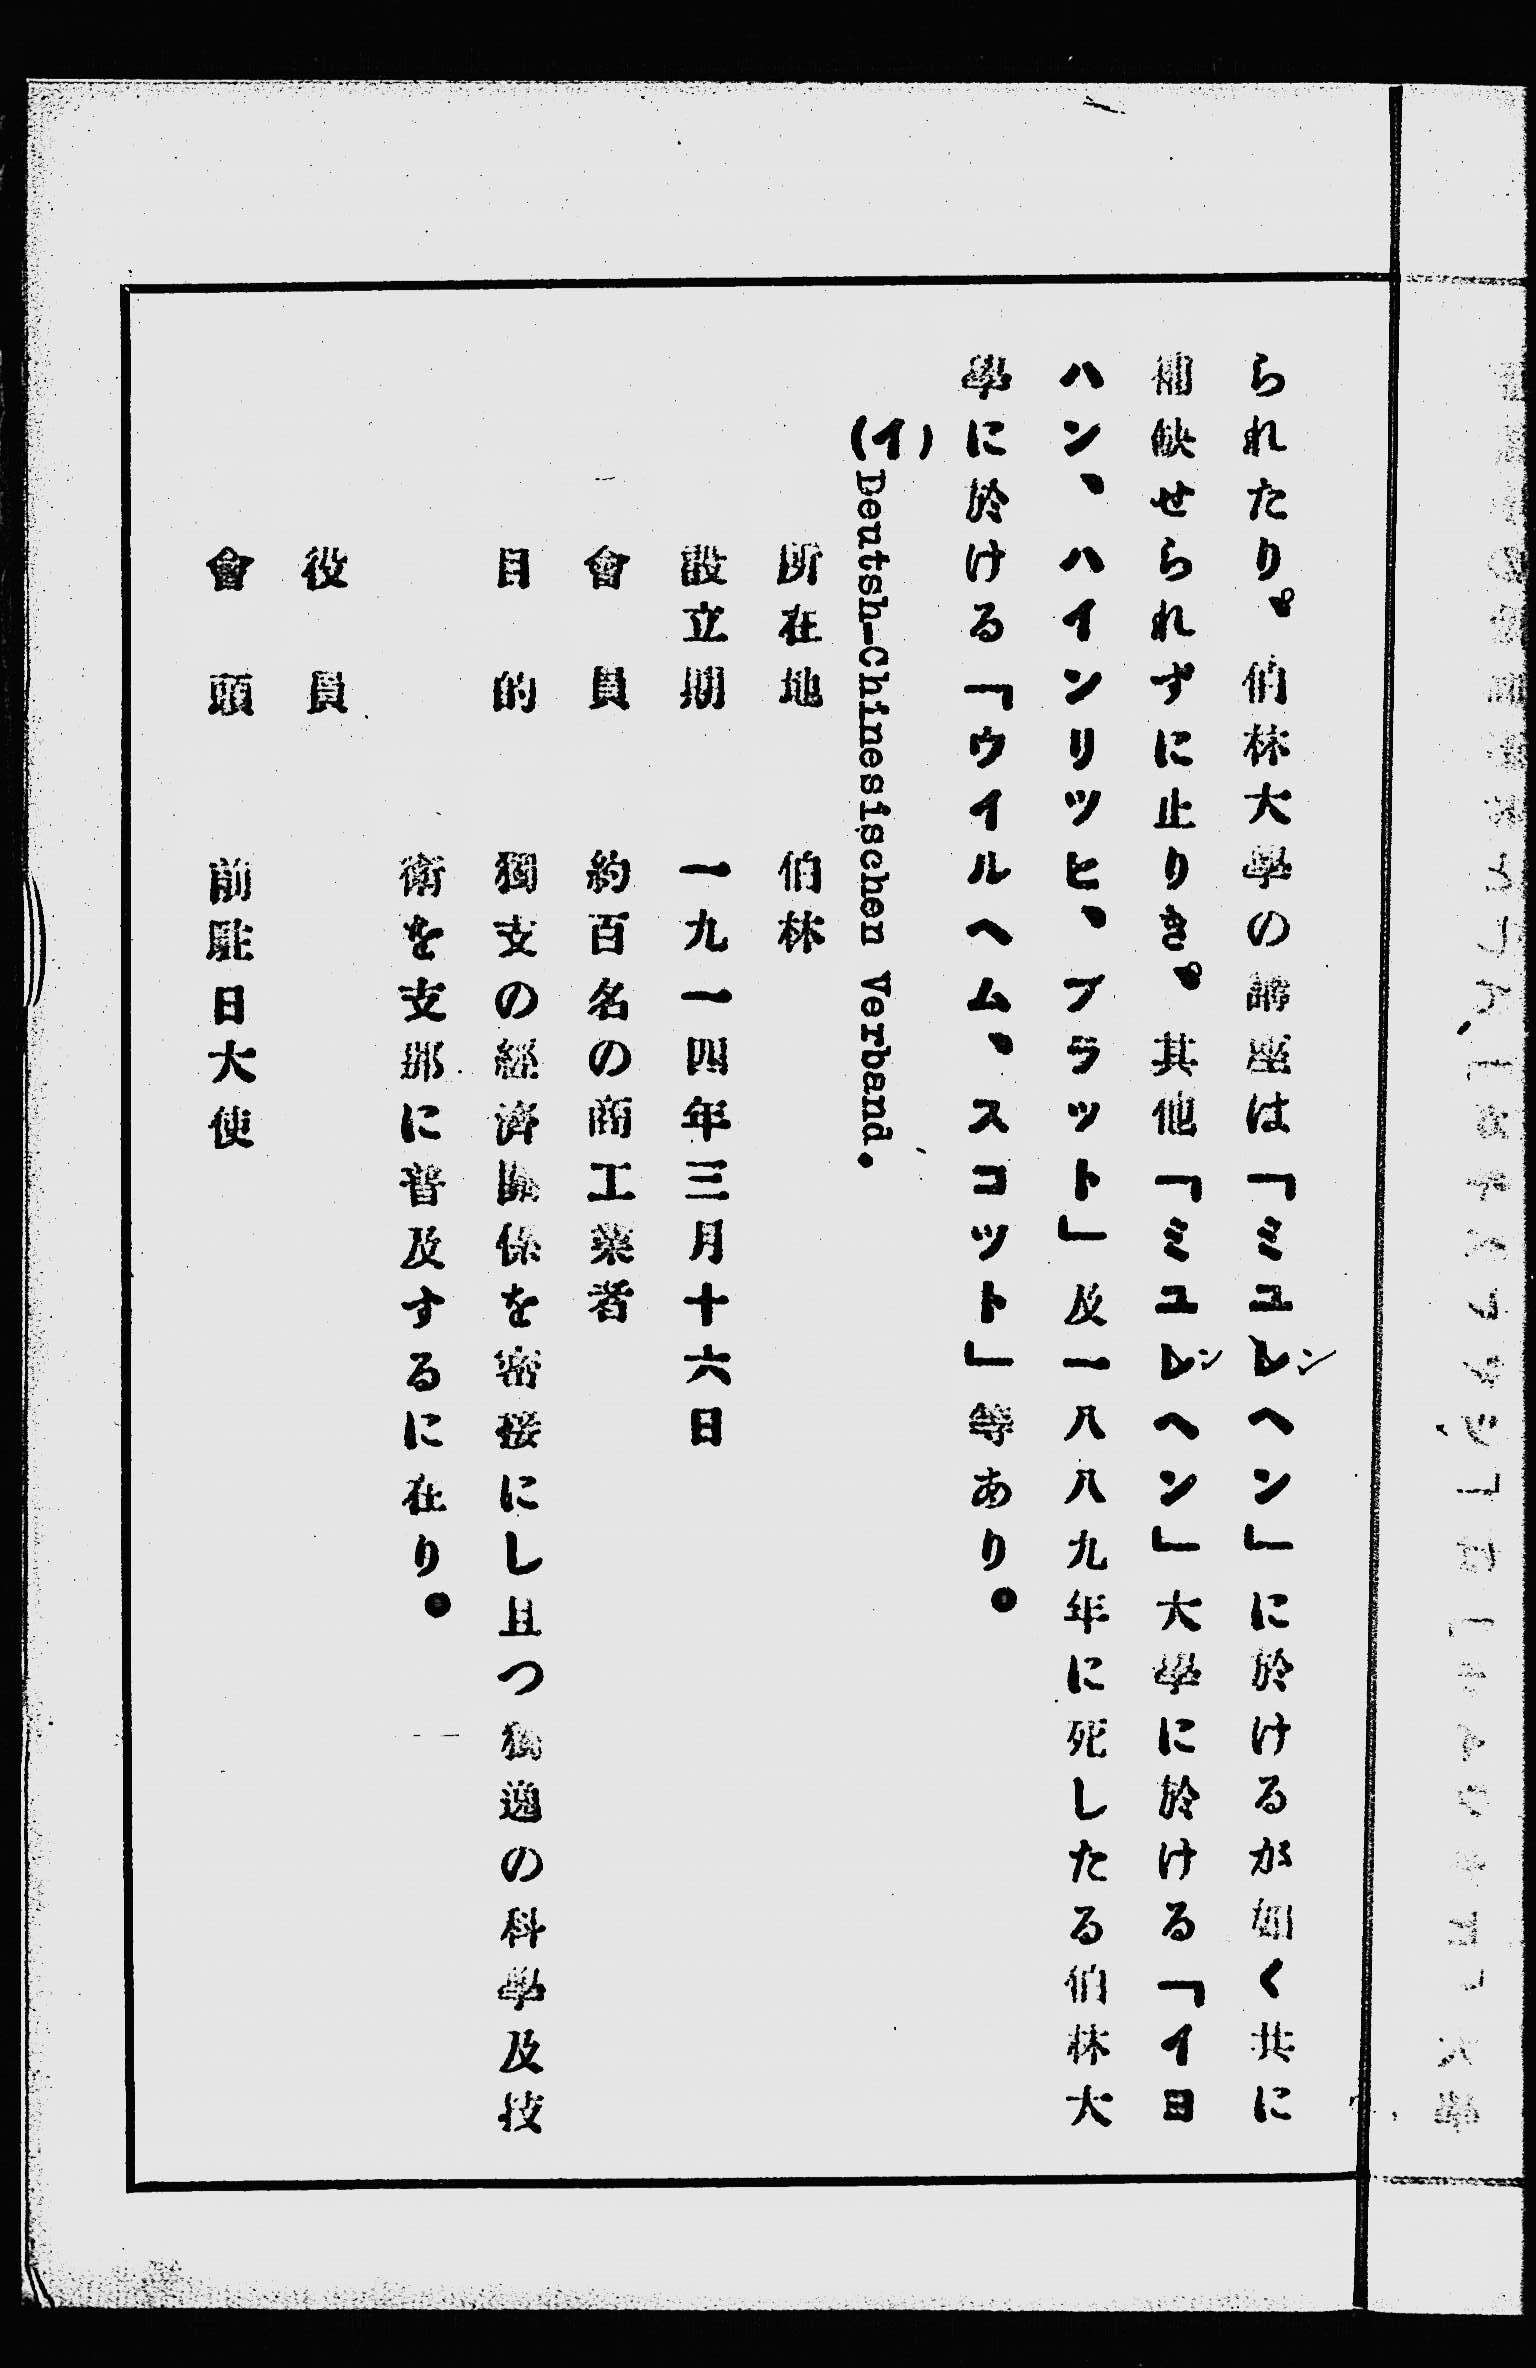 られたり。伯林大學の講座は「ミユンヘン」に於けるが如く共に
補缺せられずに止りき。其他「ミユンヘン」大學に於ける「イヨ
ハン、ハインリツヒ、プラツト」及一八八九年に死したる伯林大
學に於ける「ウイルヘム、スコツト」等あり。
(イ)Deutsh-Chinesischen Verband.
所在地 伯林
設立期 一九一四年三月十六日
會員 約百名の商工業者
目的 獨支の經濟關係を密接にし且つ獨逸の科學及技
術を支那に普及するに在り。
役員
會頭 前駐日大使